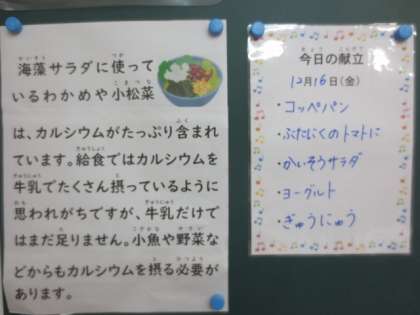 海藻サラダに使って
いるわかめや小松菜
は、カルシウムがたっぷり含まれ
ています。給食ではカルシウムを
牛乳でたくさん摂っているように
思われがちですが、牛乳だけで
はまだ足りません。小魚や野菜な
どからもカルシウムを摂る必要が
あります。
今日の献立
12月16日(金)
・コッペパン
・ぶたにくのトマトに
・かいそうサラダ
・ヨーグルト
・ぎゅうにゅう